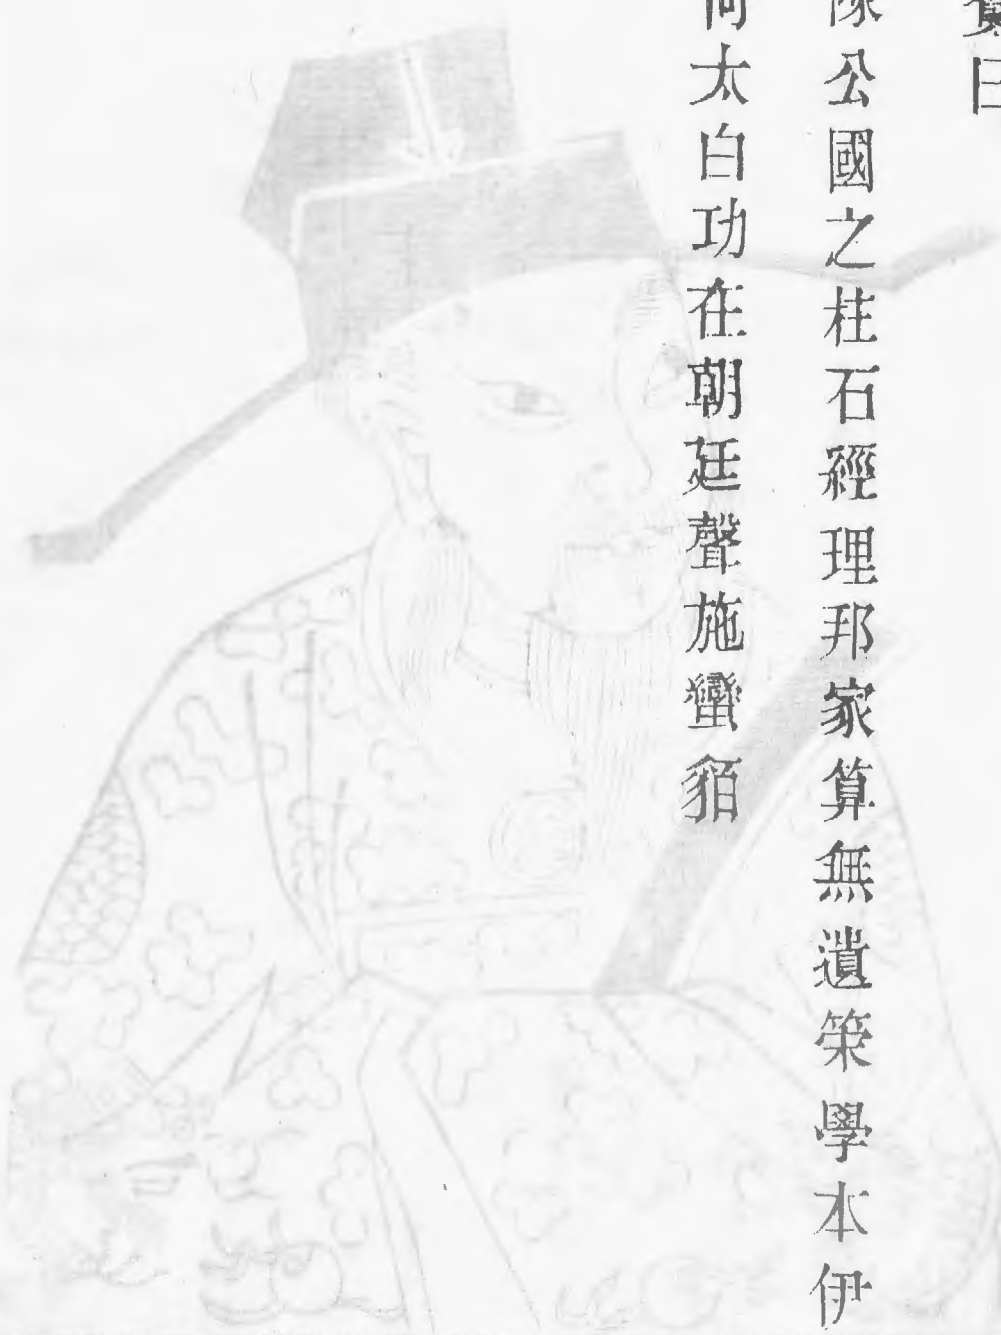 曰
公國之柱石經理邦家算無遺策學本伊
太白功在朝廷聲施蠻貊